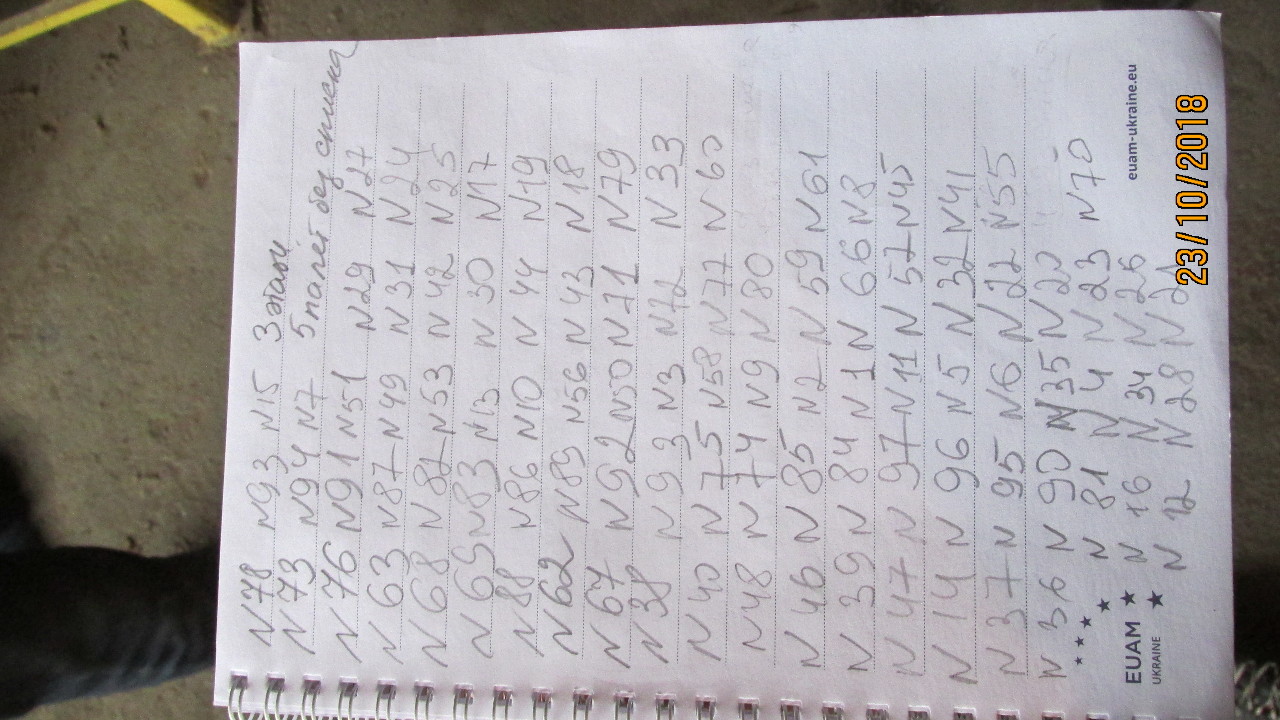 N78 N93 N15 3 этаж
N73 N94 N7 5 палет без списка
N76 N91 N51 N29 N27
N63 N87 N49 N31 N24
N68 N82 N53 N42 N25
N69 N83 N13 N30 N17
N88 N86 N10 N44 N19
N62 N89 N56 N43 N18
N67 N92 N50 N71 N79
N38 N93 N3 N72 N33
N40 N75 N58 N77 N60
N48 N74 N9 N80
N46 N85 N2 N59 N61
N39 N84 N1 N66 N8
N47 N97 N11 N57 N45
N14 N96 N5 N32 N41
N37 N95 N6 N22 N55
N36 N90 N35 N20
N81 N4 N23 N70
N16 N34 N26
N12 N28 N21
EUAM
UKRAINE
euam-ukraine.eu
23/10/2018